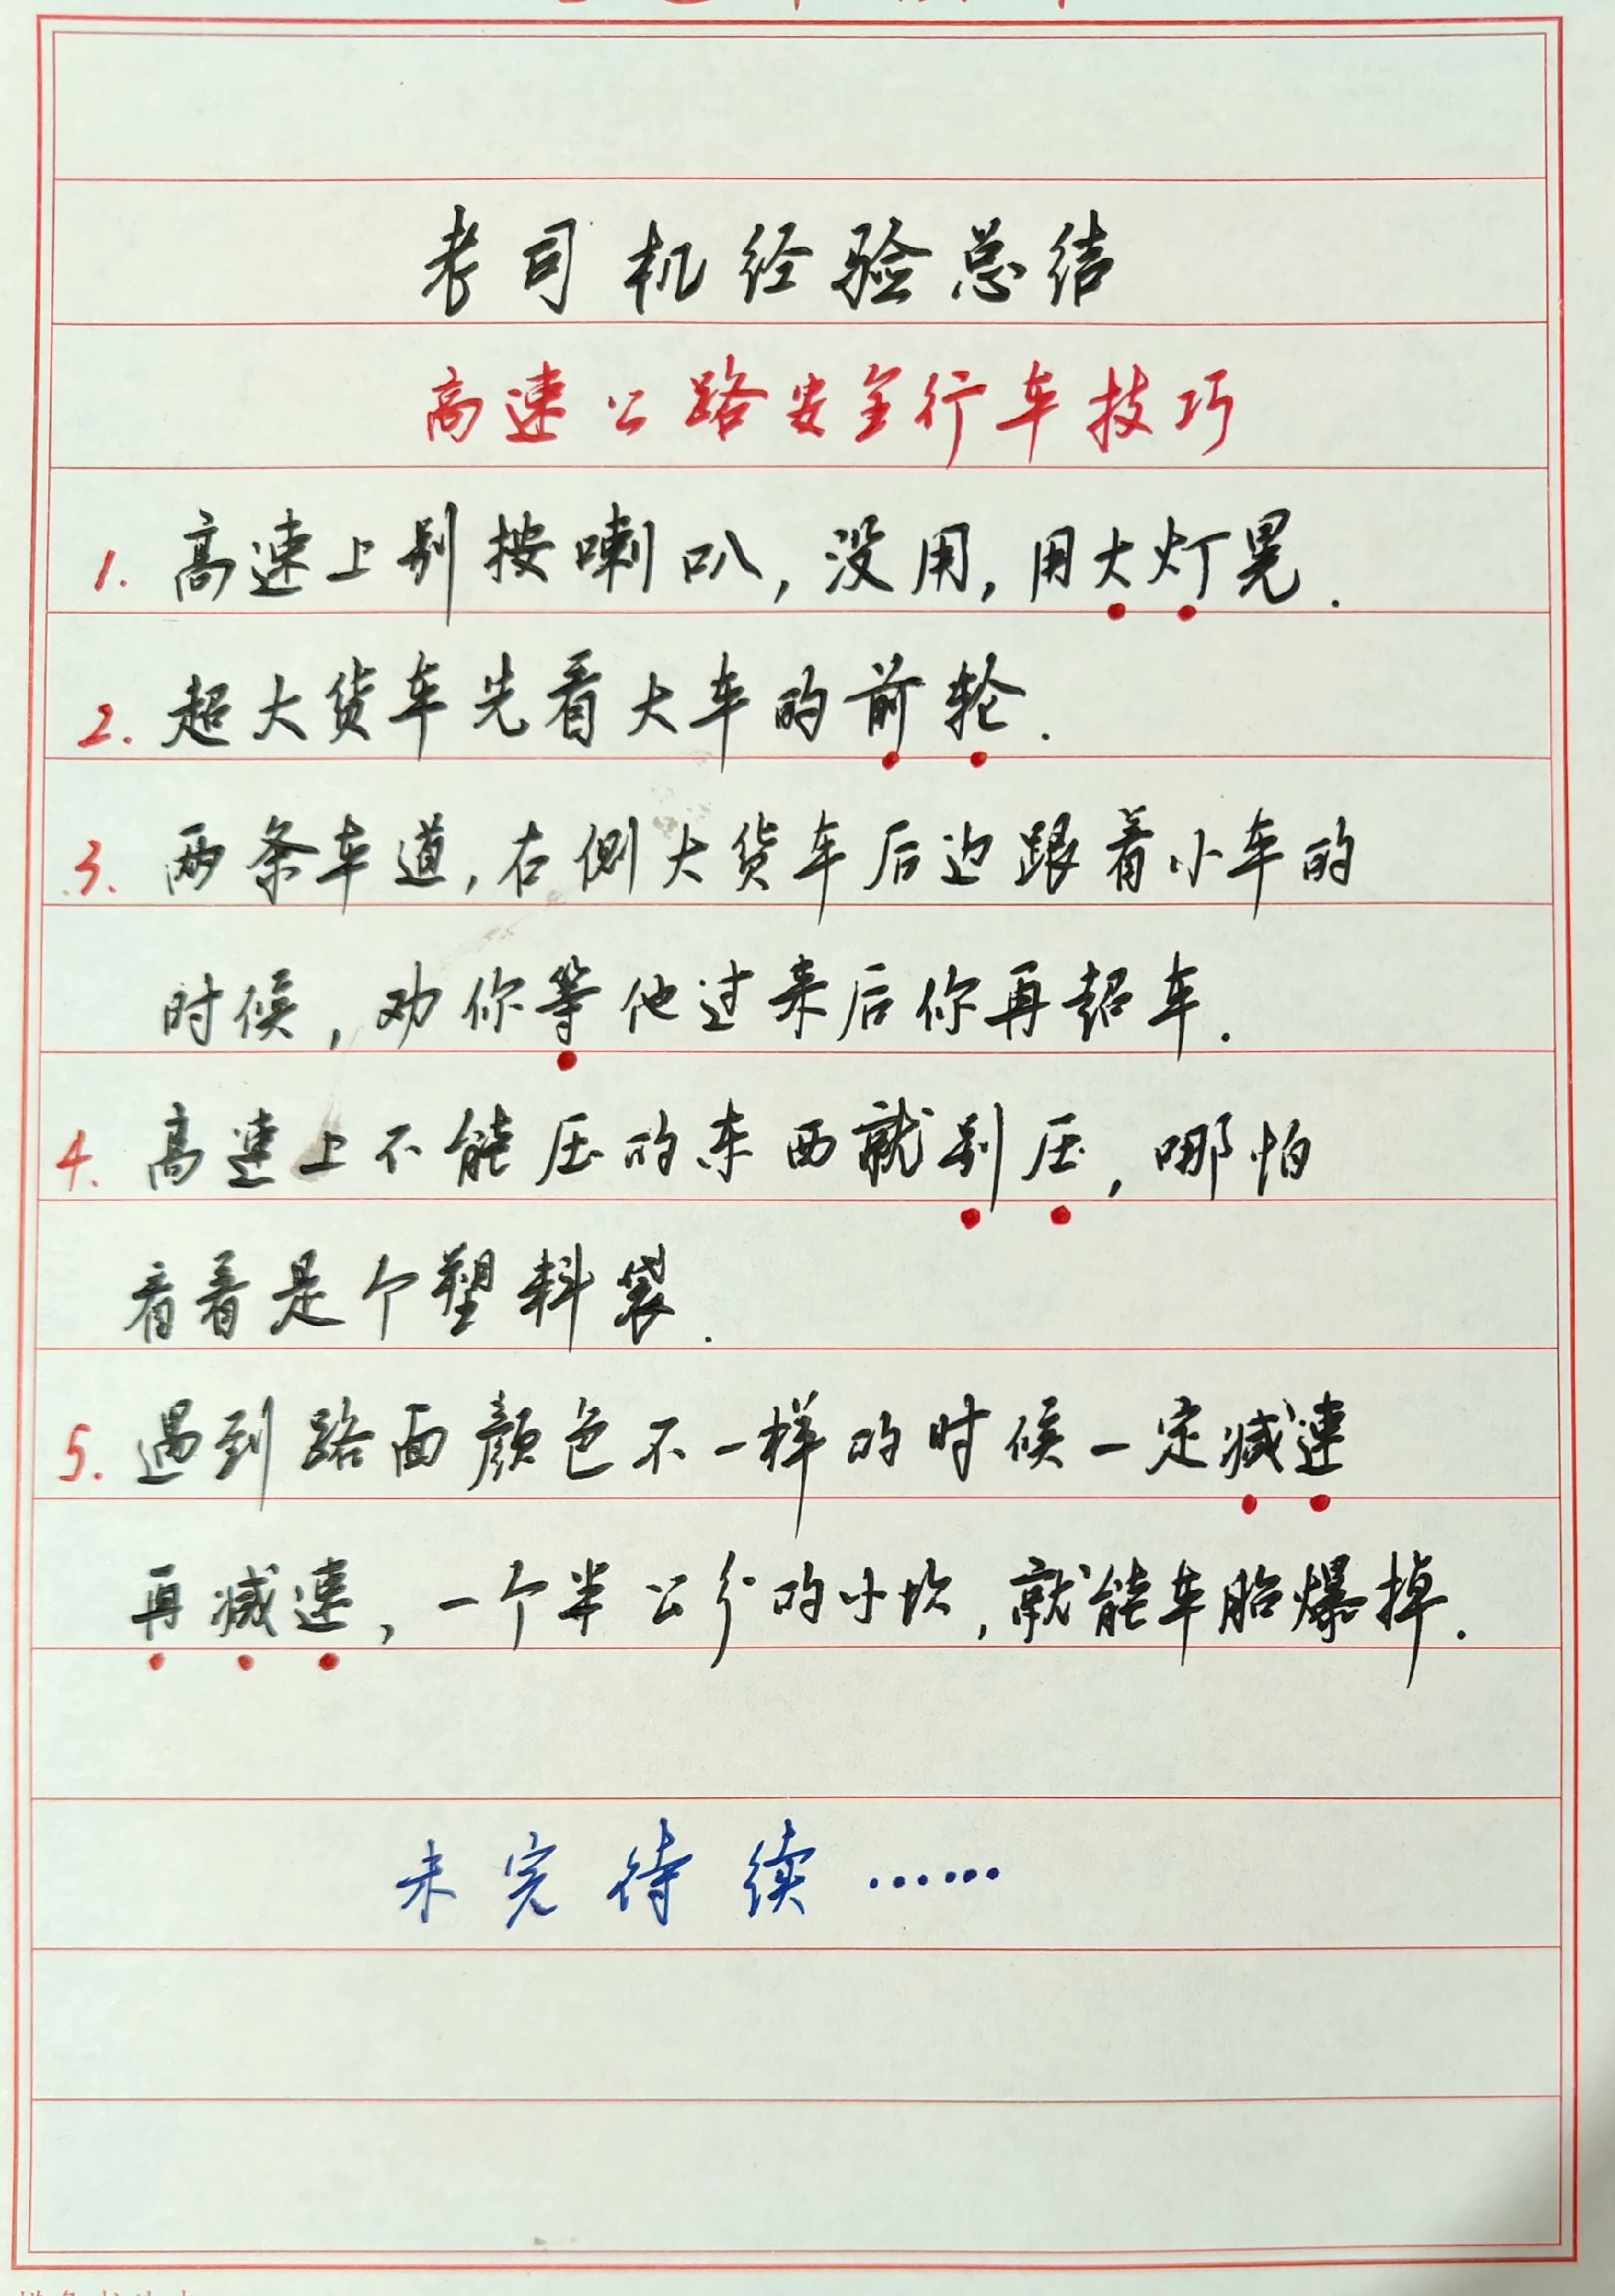 老司机经验总结
高速公路安全行车技巧
1. 高速上别按喇叭,没用,用大灯晃.
2. 超大货车先看大车的前轮.
3. 两条车道,右侧大货车后边跟着小车的
时候,劝你等他过来后你再超车.
4. 高速上不能压的东西就别压,哪怕
看着是个塑料袋.
5. 遇到路面颜色不一样的时候一定减速
再减速,一个半公分的小坎,就能车胎爆掉.
未完待续……